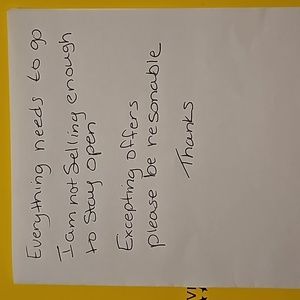 Everything needs to go
I am not Selling enough
to Stay open
Excepting offers
please be resonable
Thanks